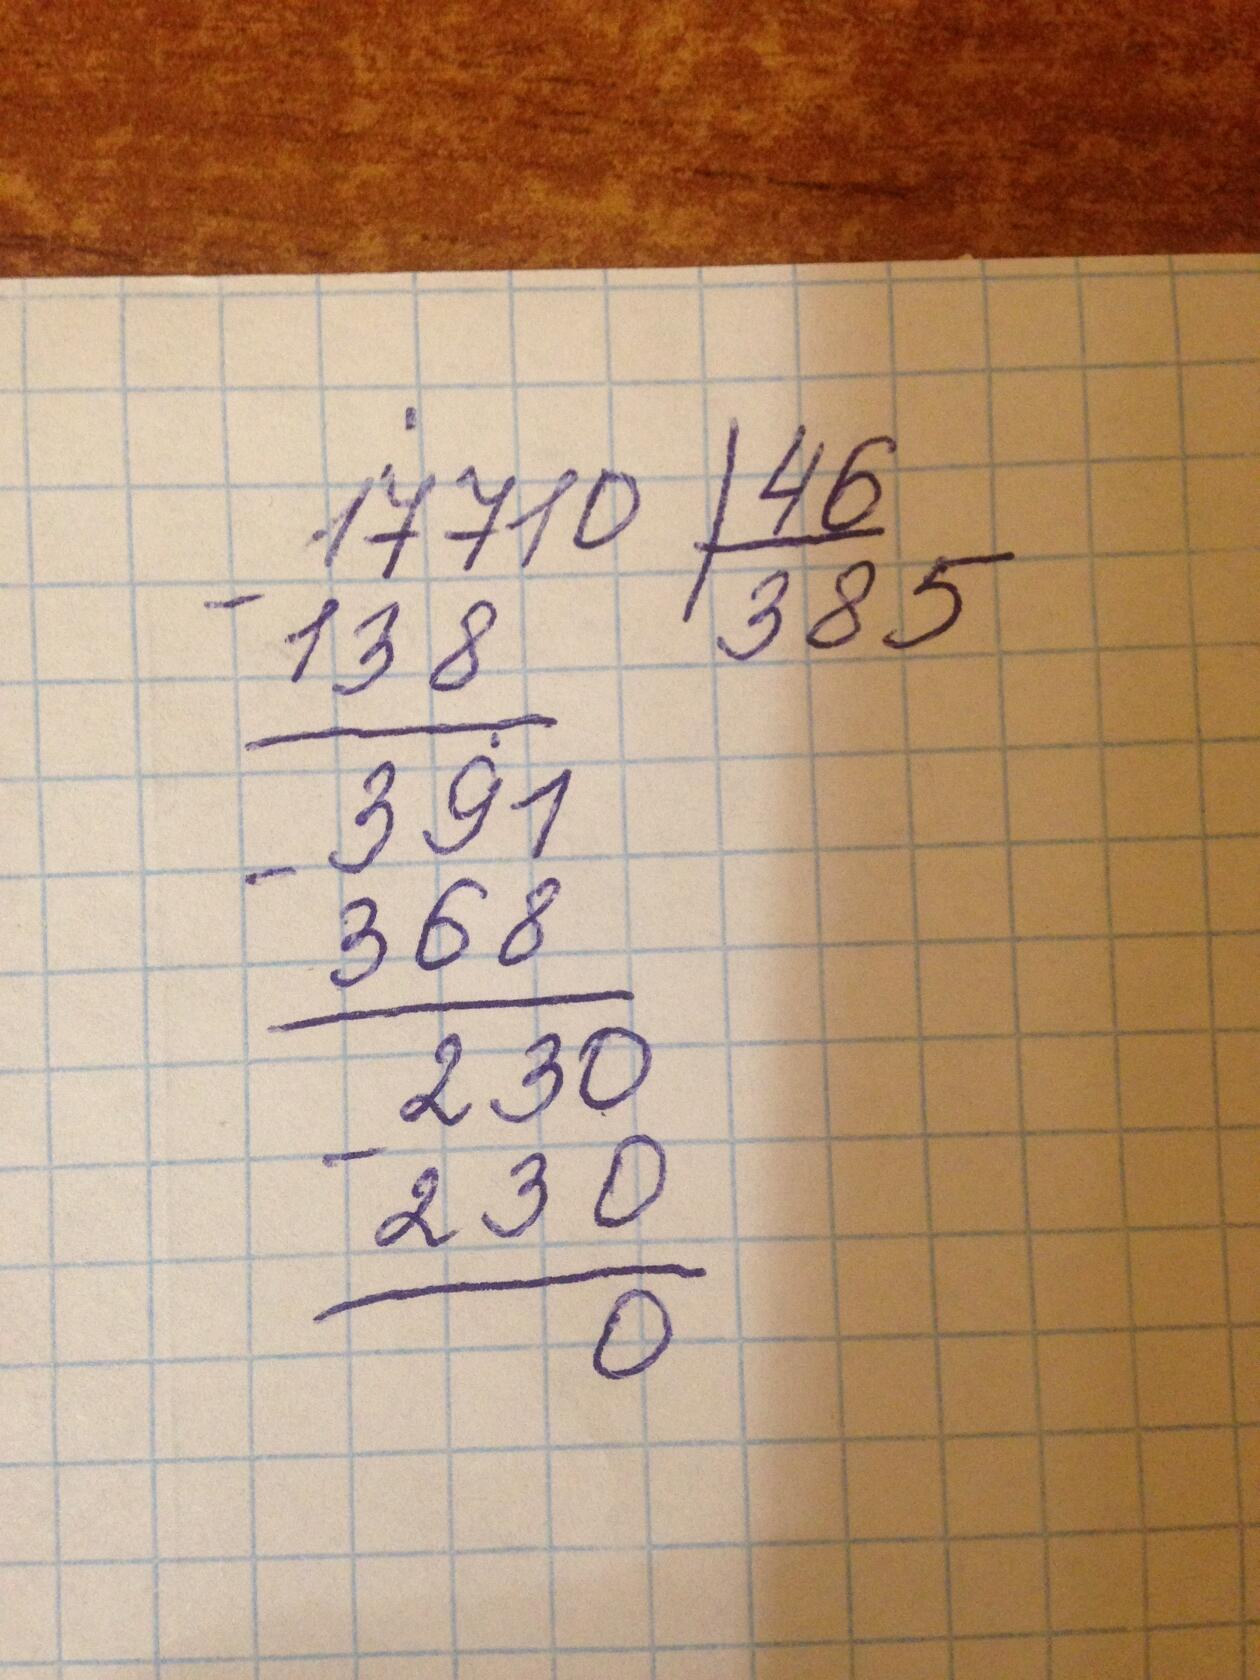 17710 46
- 138 385
391
- 368
230
- 230
0